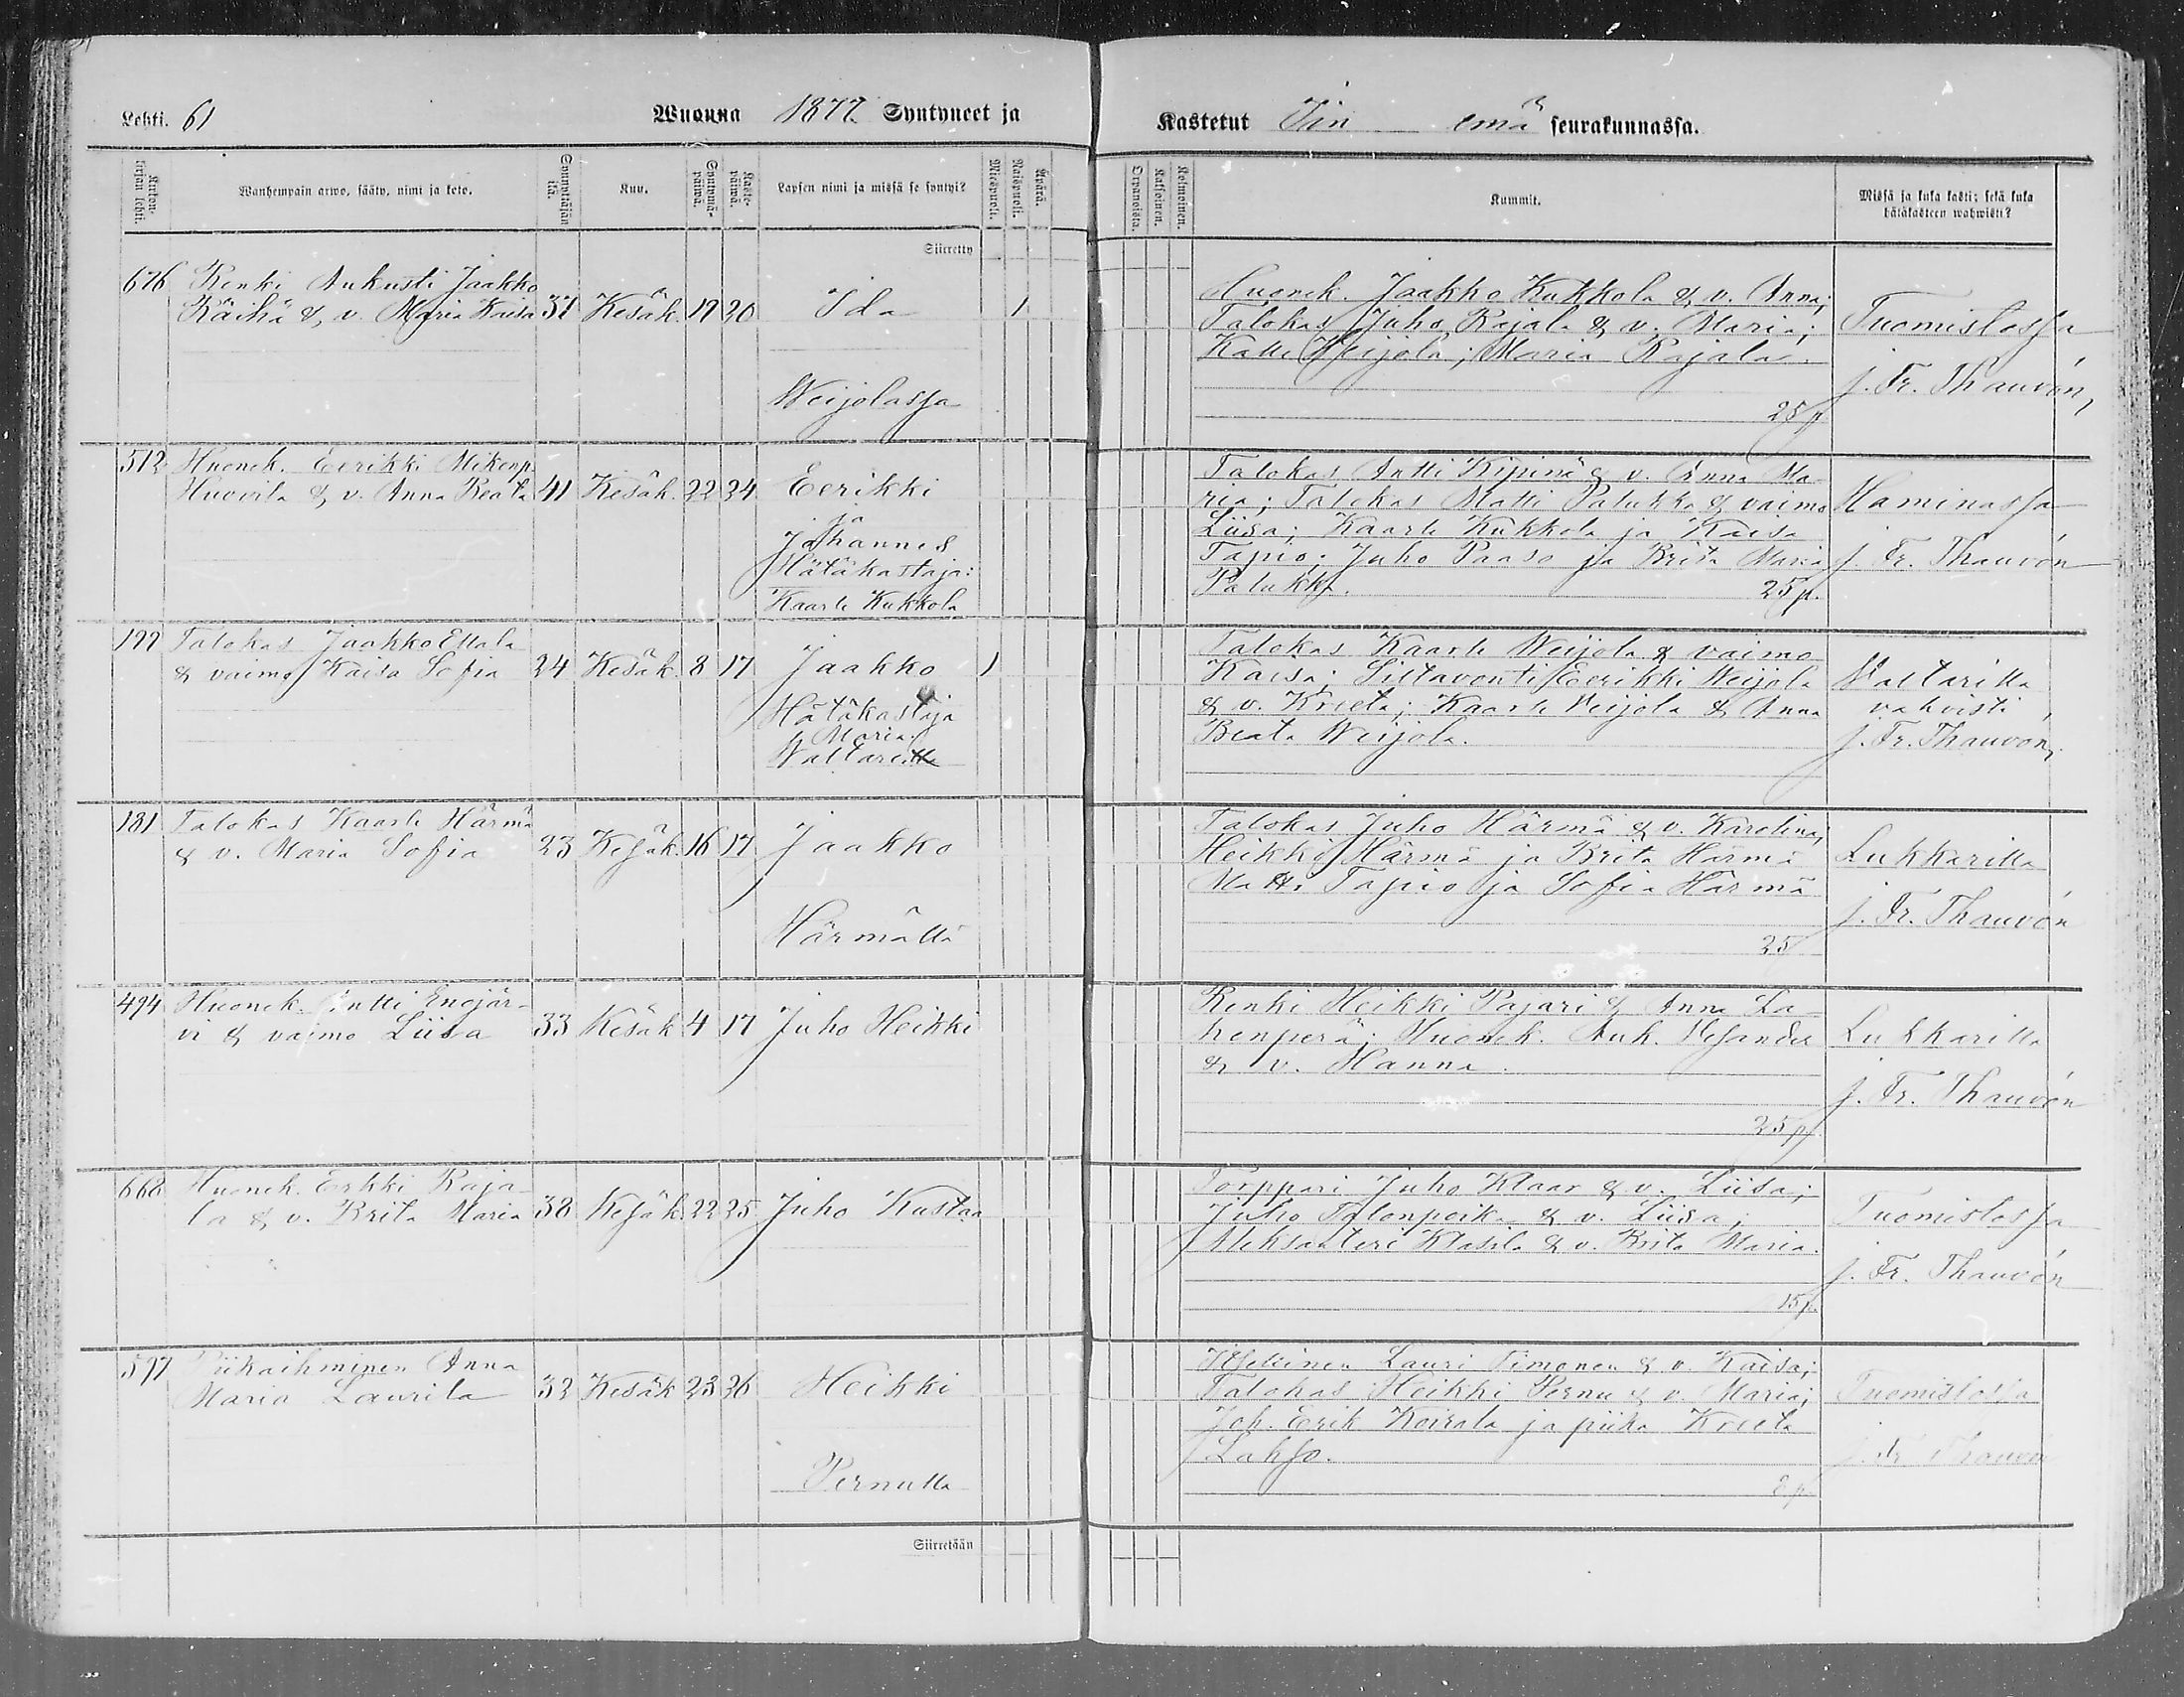 Lehti. 61
Wuonna 1877 Syntyneet ja
Kastetut Iin emä seurakunnassa.
Kirkon-
kirjan lehti.
Wanhempain arwo, sääty, nimi ja koto.
Synnyttäjän
ikä.
Kuu.
Syntymä-
päivä.
Kaste-
päivä.
Lapsen nimi ja missä se syntyi?
Miespuoli.
Naispuoli.
Äpärä.
Orpanoista.
Kaksoinen.
Kolmoinen.
Kummit.
Missä ja kuka kasti; sekä kuka
hätäkasteen wahwisti?
Siirretty
676 Renki Aukusti Jaakko
Räihä &, v. Maria Kaisa 37 Kesäk. 19 20 Ida 1
Weijolassa
Huonek. Jaakko Kukkola & v. Anna;
Talokas Juho Rajala & v. Maria;
Kalle Weijola; Maria Rajala.
25 p
Tuomistossa
j. Fr. Thauvón,
512 Huonek. Eerikki Mikonp.
Huovila & v. Anna Beata 41 Kesäk. 22 24 Eerikki
ja
Johannes
Hätäkastaja:
Kaarle Kukkola
Talokas Antti Kipinä & v. Anna Ma-
ria; Talokas Matti Palukka & vaimo
Liisa; Kaarle Kukkola ja Kaisa
Tapio; Juho Paaso ja Brita Maria
Palukka. 25 p.
Haminassa
j. Fr. Thauvón
199 Talokas Jaakko Ettala
& vaimo Kaisa Sofia 24 Kesäk. 8 17 Jaakko 1
Hätäkastaja
Maria
Waltari
Talokas Kaarle Weijola & vaimo
Kaisa; Siltavouti Eerikki Weijola
& v. Kreeta; Kaarle Weijola & Anna
Beata Weijola.
Waltarilla
vahvisti
j. Fr. Thauvón,
181 Talokas Kaarle Härmä
& v. Maria Sofia 23 Kesäk. 16 17 Jaakko
Härmällä
Talokas Juho Härmä & v. Karolina,
Heikki Härmä ja Brita Härmä
Matti Tapio ja Sofia Härmä
25
Lukkarilla
j. Fr. Thauvón
494 Huonek. Antti Enojär-
vi & vaimo Liisa 33 Kesäk 4 17 Juho Heikki
Renki Heikki Pajari & Anna La-
henperä; Huonek. Auk.
& v. Hanna.
25 p
Lukkarilla
j. Fr. Thauvón
668 Huonek. Erkki Raja-
la & v. Brita Maria 38 Kesäk. 22 25 Juho Kustaa
Torppari Juho Klaar & v. Liisa;
Juho Talonpoika & v. Liisa;
Aleksanteri Klasila & v. Brita Maria.
15 p.
Tuomistossa
j. Fr. Thauvón
597 Piikaihminen Anna
Maria Laurila 33 Kesäk 23 26 Heikki
Pernulla
Itsellinen Lauri Timonen & v. Kaisa;
Talokas Heikki Pernu & v. Maria;
Joh. Erik Koirala ja piika Kreeta
Lahso.
8 p
Tuomistossa
j. Fr. Thauvón
Siirretään